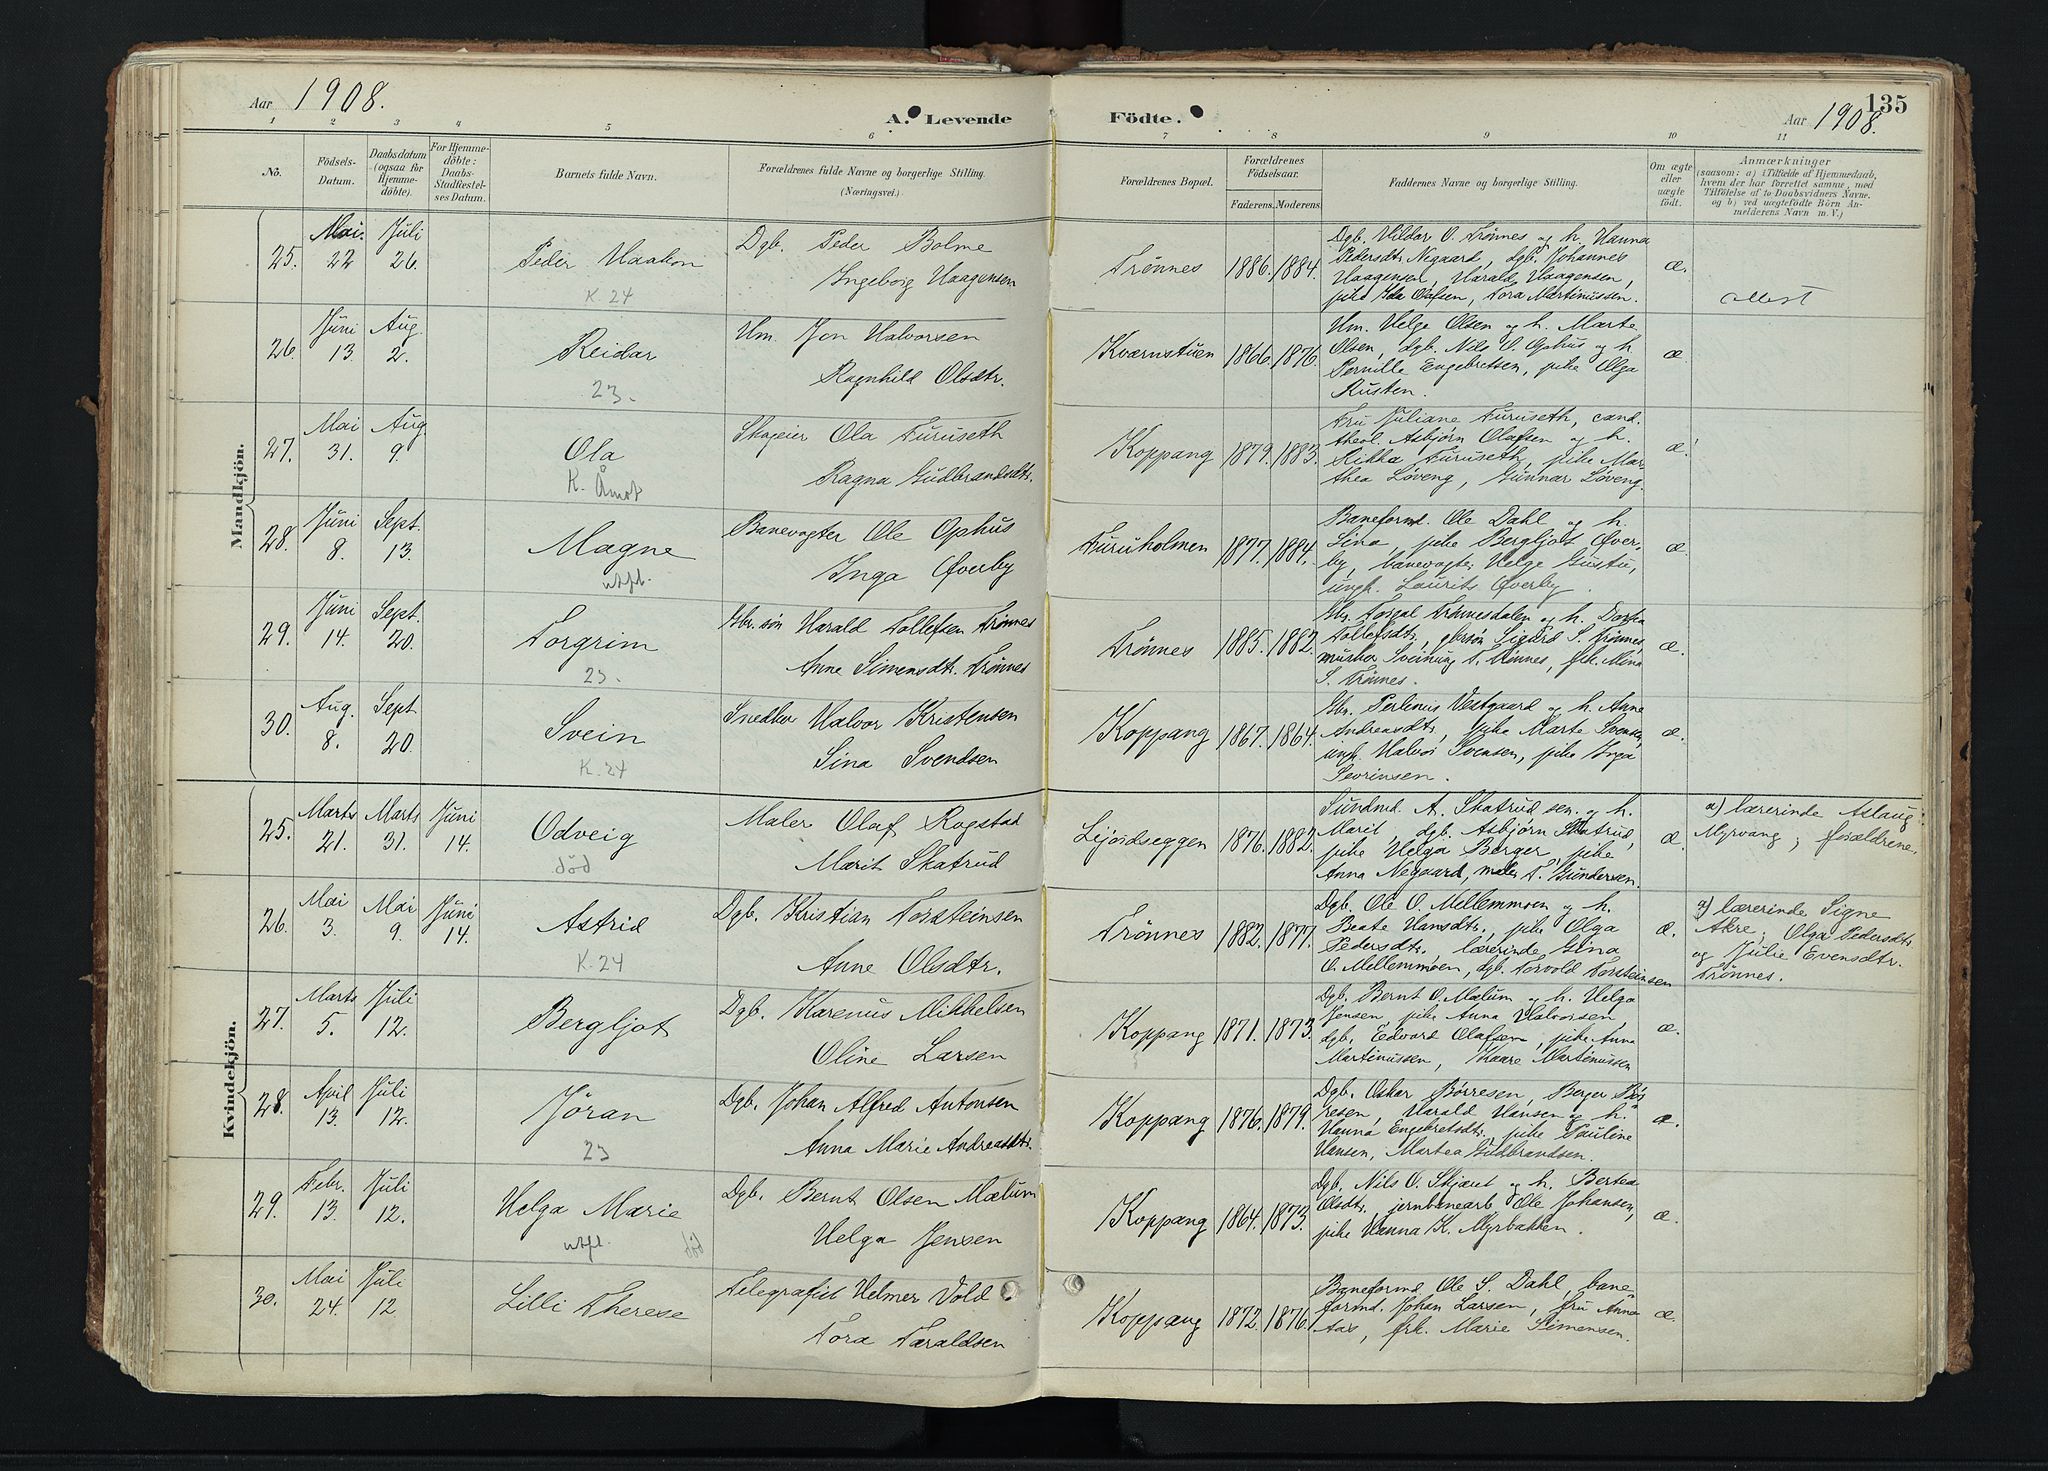 Aar 1908.
A. Levende
Födte.
Aar 1908.
135
1 2 3 4 5 6 7 8 9 10 11
No.
Födsels-
Datum.
Daabsdatum
(ogsaa for
Hjemme-
döbte).
For Hjemme-
döbte:
Daabs-
Stadfæstel-
ses Datum.
Barnets fulde Navn.
Forældrenes fulde Navne og borgerlige Stilling.
(Næringsvei.)
Forældrenes Bopæl.
Forældrenes
Födselsaar.
Faderens. Moderens.
Faddernes Navne og borgerlige Stilling.
Om ægte
eller
uægte
født.
Anmærkninger
(saasom: a) i Tilfælde af Hjemmedaab,
hvem der har forrettet samme, med
Tilföielse af to Daabsvidners Navne.
og b) ved uægtefödte Börn An-
melderens Navn m. V.)
Mandkjön.
25. Mai 22 Juli 26. Peder Haakon
K. 24
Dgb. Peder Bolme
Ingeborg Haagensen
Trönnes 1886. 1884.
Dgb. Hildor O. Trönnes og h. Hanna
Pedersdtr. Negaard, dgb. Johannes
Haagensen, Harald Haagensen,
pike Ida Olafsen, Tora Martinussen.
æ.
attest
26. Juni 13. Aug. 2. Reidar
23.
Um. Jon Halvorsen
Ragnhild Olsdtr.
Kværnstuen 1866. 1876.
Um. Helge Olsen og h. Marte
Olsen, dgb. Nils O. Ophus og h.
Pernille Engebretsen, pike Olga
Rusten.
æ
27. Mai 31. Aug. 9. Ola
K. Åmot
Skogeier Ola Furuseth
Ragna Gudbrandsdtr.
Koppang 1879. 1883.
Fru Juliane Furuseth, cand.
theol. Asbjörn Olafsen og h.
Rikka Furuseth, pike Mar
thea Löveng, Gunnar Löveng.
æ.
28. Juni 8. Sept. 13. Magne
utfl.
Banevogter Ole Ophus
Inga Øverby
Furuholmen 1877. 1884.
Baneformd. Ole Dahl og h.
Lina, pike Bergljot Øver-
by, banevogter Helge Gustu,
ungk. Laurits Øverby.
æ.
29. Juni 14. Sept. 20. Torgrim
23.
Gbr. sön Harald Tollefsen Trönnes
Anne Simensdtr. Trönnes
Trönnes 1885. 1882.
Gbr. Torgal Trönnesdalen og h. Dortea
Tollefsdtr, gbrsön Sigurd S. Trönnes,
Sveinung T. Trönnes, frk. Mina
S. Trönnes.
æ.
30. Aug. 8. Sept 20. Svein
K. 24
Snedker Halvor Kristensen
Sina Svendsen
Koppang 1867. 1864.
Gbr. Vestgaard og h. Anne
Andreasdtr, pike Marte Svensen,
ungk. Halvor Svensen, pike Inga
Sevrinsen.
æ.
Kvindekjön.
25. Marts 21. Marts 31. Juni 14. Odveig
död
Maler Olaf Rogstad
Marit Skatrud
Lejordseggen 1876. 1882.
A. Skatrud sen. og h.
Marit, dgb. Asbjörn Skatrud,
pike Helga Berger, pike
Anna Negaard, maler T. Gundersen.
æ.
a) lærerinde Aslaug
Myrvang; forældrene.
26. Mai 3. Mai 9. Juni 14. Astrid
K. 24
Dgb. Kristian Torsteinsen
Anne Olsdtr.
Trönnes 1882. 1877.
Dgb. Ole O. Mellemmoen og h.
Beate Hansdtr., pike Olga
Pedersdtr. lærerinde Gina
O. Mellemmoen, dgb. Torvold Torsteinsen
æ.
a) lærerinde Signe
Akre; Olga Pedersdtr.
og Julie Evensdtr.
Trönnes.
27. Marts 5. Juli 12. Bergljot
Dgb. Karenus Mikkelsen
Oline Larsen
Koppang 1871. 1873.
Dgb. Bernt O. Mælum og h. Helga
Jensen, pike Anna Halvorsen,
dgb. Edvard Olafsen, pike Anna
Martinussen, Kaare Martinussen
æ.
28. April 13. Juli 12. Jöran
23
Dgb. Johan Alfred Antonsen
Anna Marie Andreasdtr.
Koppang 1876. 1879.
Dgb. Oskar Börresen, Berger Bör
resen, Harald Hansen og h.
Hanna Engebretsdtr., pike Pauline
Hansen, Martea Gudbrandsen.
æ.
29. Febr. 13. Juli 12. Helga Marie
utfl. död
Dgb. Bernt Olsen Mælum
Helga Jensen
Koppang 1864. 1873.
Dgb. Nils O. Skjæret og h. Bertea
Olsdtr, jernbanearb Ole Johansen,
pike Hanna K. Myrbakken.
æ.
30. Mai 24. Juli 12 Lilli Therese
Telegrafist Helmer Vold
Tora Taraldsen
Koppang 1872. 1876.
Baneformd. Ole S. Dahl, bane-
formd. Johan Larsen, fru Anna
Aas, frk. Marie Simensen.
æ.